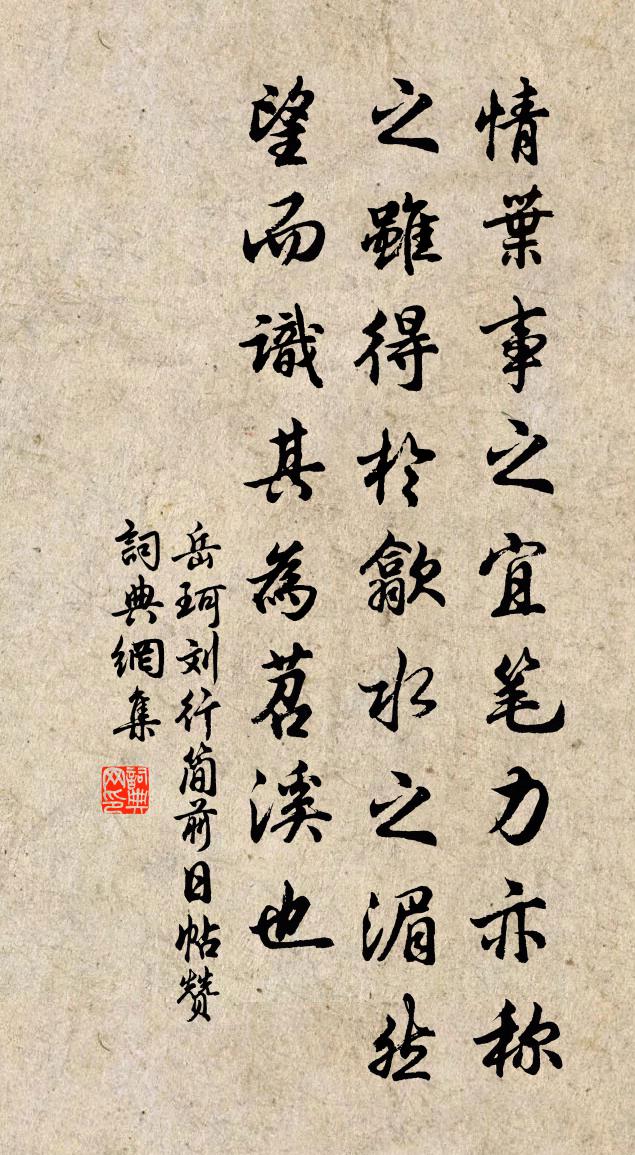 情葉事之宜笔力亦称
之雖得於歙水之湄然
望而識其為苕溪也
岳珂刘行简前日帖赞
詞典網集
詞典网印